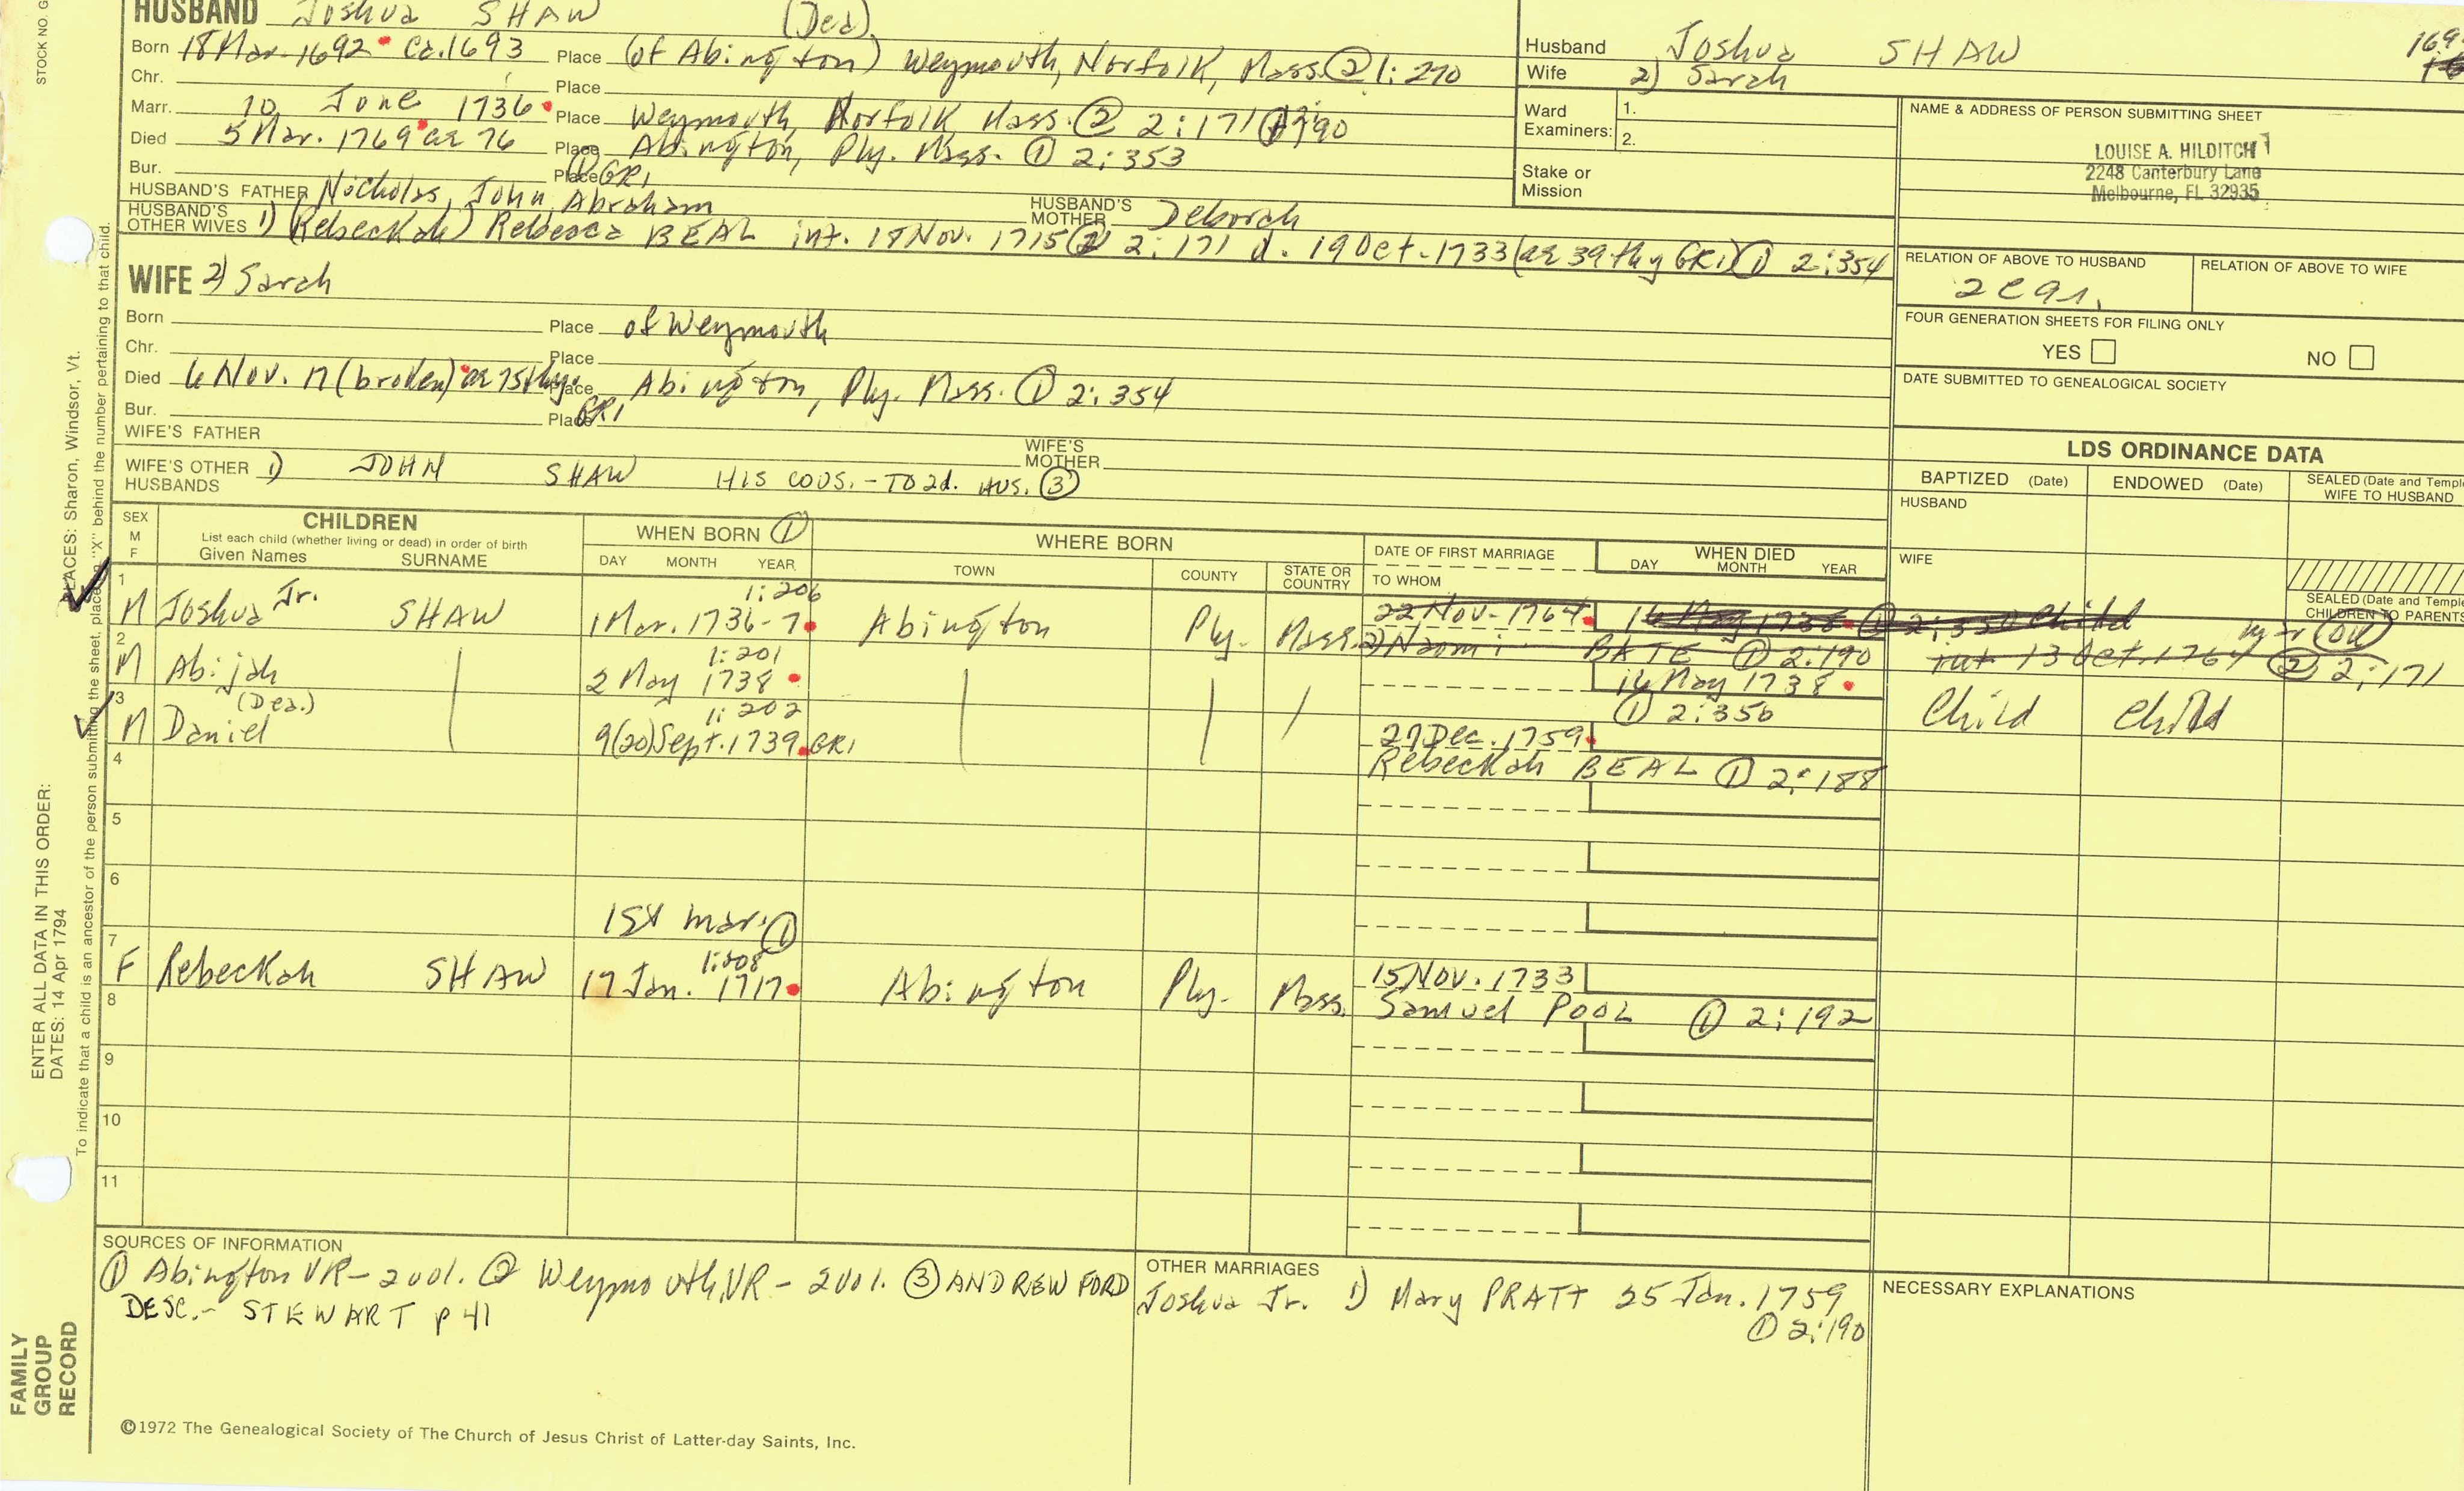 HUSBAND Joshua SHAW (Dea)
Born 18 Mar. 1692 ca. 1693 Place (of Abington) Weymouth, Norfolk, Mass. ② 1:270
Chr. Place
Marr. 10 June 1736 Place Weymouth, Norfolk Mass. ② 2:171 ① 190
Died 5 Mar. 1769 ae 76 Place Abington, Ply. Mass. ① 2:353
Bur. Place ① GR1
HUSBAND'S FATHER Nicholas, John, Abraham HUSBAND'S MOTHER Deborah
HUSBAND'S OTHER WIVES 1) (Rebeckah) Rebecca BEAL int. 18 Nov. 1715 ② 2:171 d. 19 Oct. 1733 (ae 39th y GR1) ① 2:354
WIFE 2) Sarah
Born Place of Weymouth
Chr. Place
Died 6 Nov. 17 (broken) ae 75th y. Place Abington, Ply. Mass. ① 2:354
Bur. Place GR1
WIFE'S FATHER WIFE'S MOTHER
WIFE'S OTHER HUSBANDS 1) JOHN SHAW HIS COUS. - TO 2d. HUS. ③
Husband Joshua SHAW
Wife 2) Sarah
Ward Examiners: 1.
2.
Stake or Mission
NAME & ADDRESS OF PERSON SUBMITTING SHEET
LOUISE A. HILDITCH
2248 Canterbury Lane
Melbourne, FL 32935
RELATION OF ABOVE TO HUSBAND RELATION OF ABOVE TO WIFE
FOUR GENERATION SHEETS FOR FILING ONLY
YES NO
DATE SUBMITTED TO GENEALOGICAL SOCIETY
LDS ORDINANCE DATA
BAPTIZED (Date) ENDOWED (Date) SEALED (Date and Templ
WIFE TO HUSBAND
HUSBAND
WIFE
SEALED (Date and Templ
CHILDREN TO PARENTS
SEX M F CHILDREN WHEN BORN ① WHERE BORN DATE OF FIRST MARRIAGE WHEN DIED
List each child (whether living or dead) in order of birth
Given Names SURNAME DAY MONTH YEAR TOWN COUNTY STATE OR COUNTRY TO WHOM DAY MONTH YEAR
1 M Joshua Jr. SHAW 1:206 1 Mar. 1736-7 Abington Ply. Mass. 22 Nov. 1764 16 May 1738 ① 2:350 Child
2) Naomi BATE ① 2:190 int 13 Oct. 1764 ② 2:171
2 M Abijah 1:201 2 May 1738 16 May 1738
① 2:350 Child Child
3 M (Dea.) Daniel 1:202 9(20) Sept. 1739 GR1 27 Dec. 1759
Rebeckah BEAL ① 2:188
4
5
6
1st mar. ①
7 F Rebeckah SHAW 1:208 17 Jan. 1717 Abington Ply. Mass. 15 Nov. 1733
Samuel POOL ① 2:192
8
9
10
11
SOURCES OF INFORMATION
① Abington VR - 2 vol. ② Weymouth VR - 2 vol. ③ ANDREW FORD
DESC. - STEWART p 41
OTHER MARRIAGES
Joshua Jr. 1) Mary PRATT 25 Jan. 1759
① 2:190
NECESSARY EXPLANATIONS
©1972 The Genealogical Society of The Church of Jesus Christ of Latter-day Saints, Inc.
STOCK NO. G
PLACES: Sharon, Windsor, Vt.
ENTER ALL DATA IN THIS ORDER:
DATES: 14 Apr 1794
To indicate that a child is an ancestor of the person submitting the sheet, place an "X" behind the number pertaining to that child.
FAMILY
GROUP
RECORD